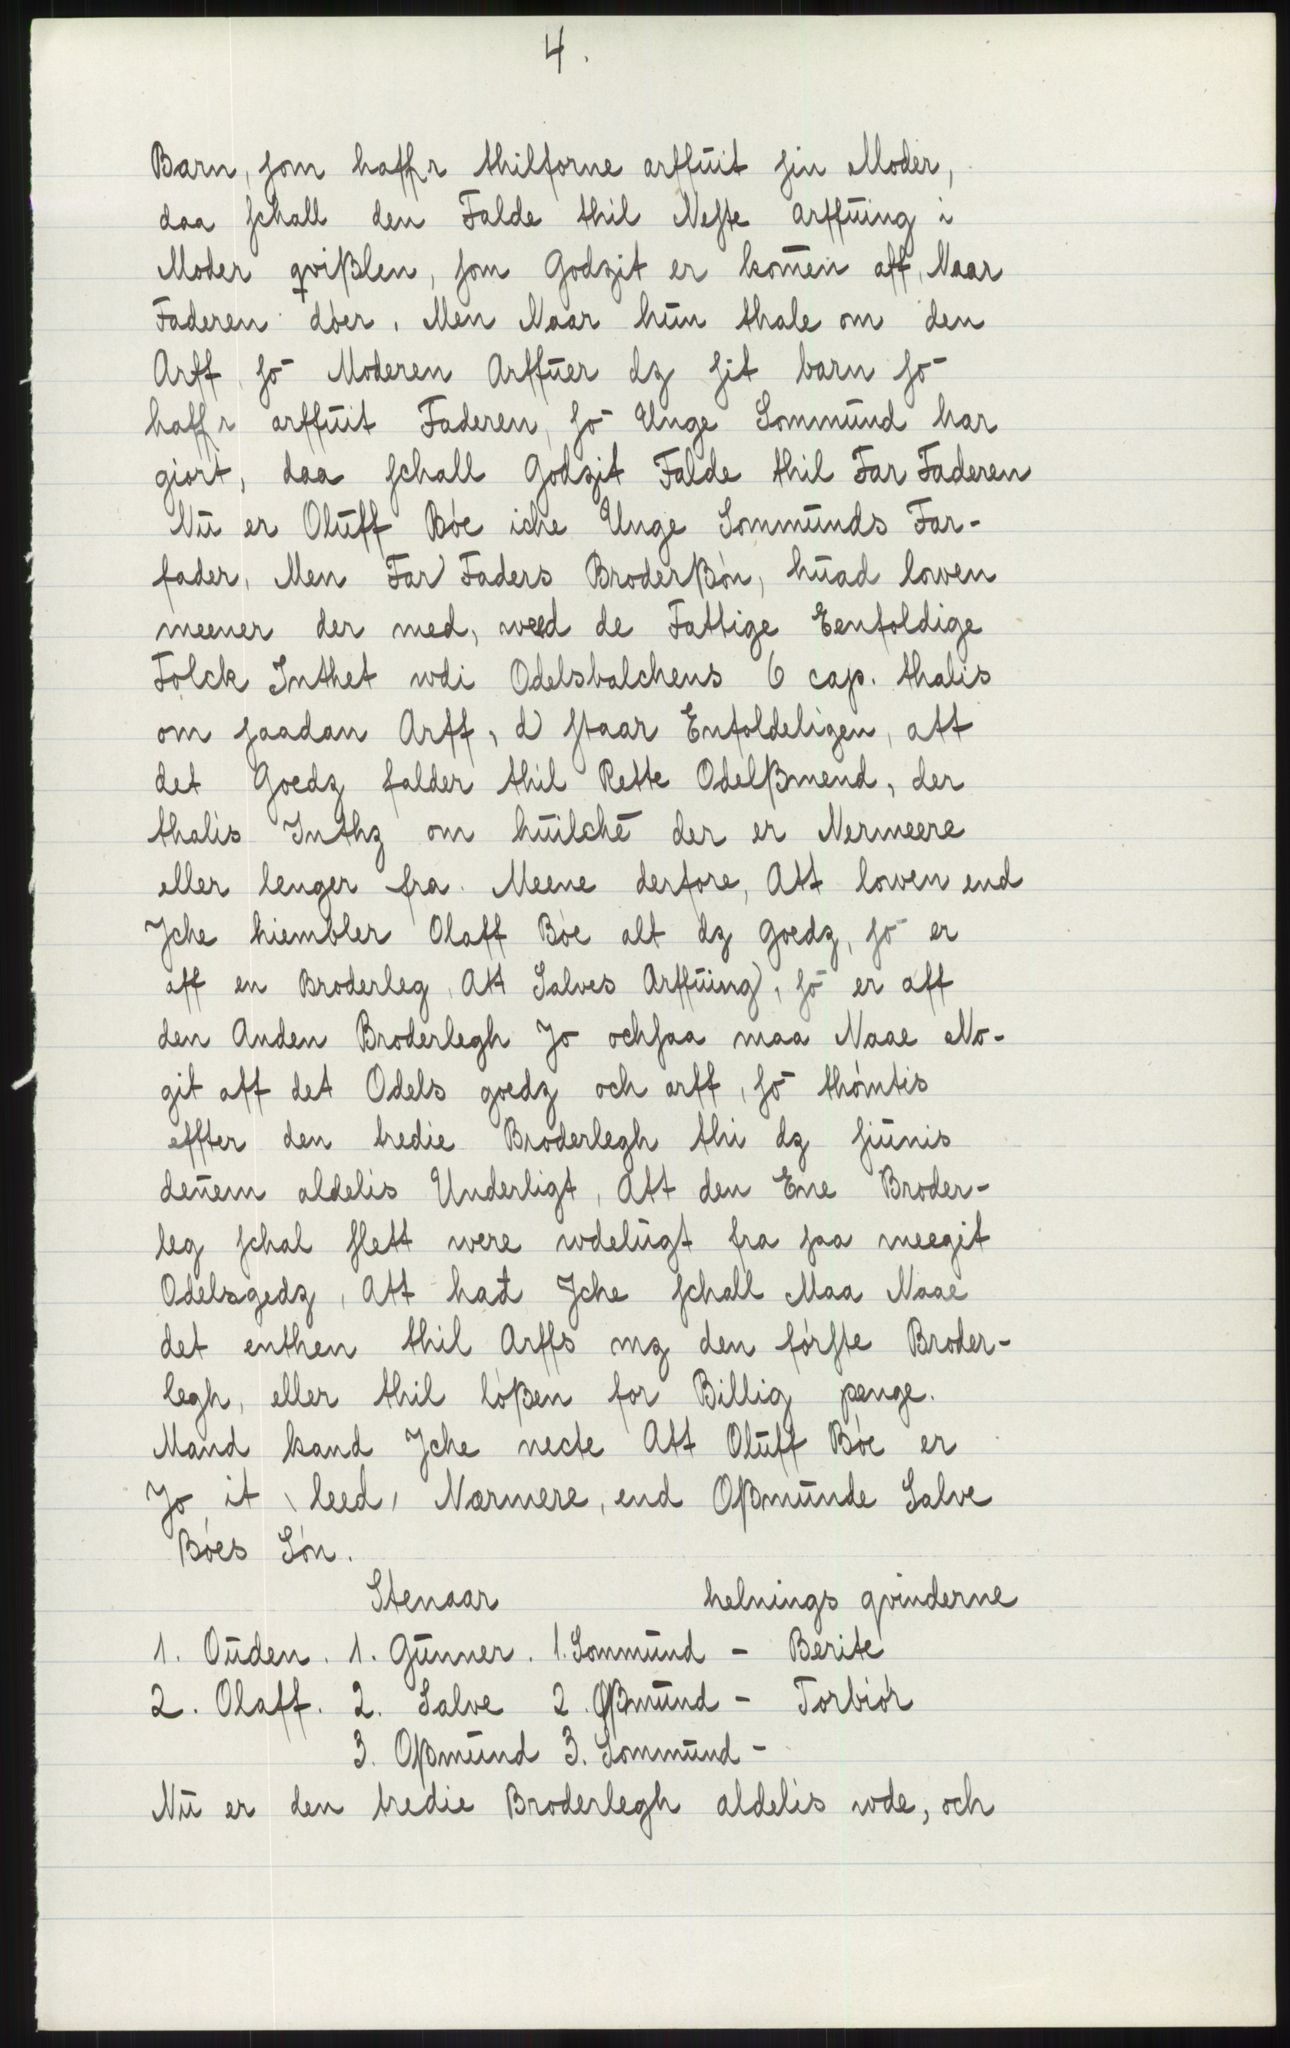 4.
Barn, som haffr thilforne arffuit sin Moder,
daa schall den Falde thil Neste arffuing i
Moder qvißlen, som Godzit er kom̄en aff, Naar
Faderen døer. Men Naar hun thale om den
Arff, so̅ Moderen Arffuer dz sit barn so̅
haffr arffuit Faderen, so̅ Unge Sommund har
giort, daa schall Godzit Falde thil Far Faderen
Nu er Oluff Bøe iche Unge Sommunds Far-
fader, Men Far Faders Broderßøn, huad lowen
meener der med, weed de Fattige Eenfoldige
Folck Inthet wdi Odelsbalchens 6 cap. thalis
om saadan Arff, d staar Enfoldeligen, att
det Goedz falder thil Rette Odelßmend, der
thalis Inthz om huilche̅ der er Nermeere
eller lenger fra. Meene derfore, Att lowen end
Jche hiembler Olaff Bøe alt dz goedz, so̅ er
aff en Broderleg, Att Salves Arffuing, so̅ er aff
den Anden Broderlegh Jo ochsaa maa Naae No-
git aff det Odels goedz och arff, so̅ thømtis
effter den tredie Broderlegh thi dz siunis
den̄em aldelis Underligt, Att den Ene Broder-
leg schal slett were wdelugt fra saa meegit
Odelsgedz, Att had Jche schall Maa Naae
det enthen thil Arffs mz den første Broder-
legh, eller thil løßen for Billig penge.
Mand kand Jche necte Att Oluff Bøe er
Jo it leed, Nærmere, end Oßmunde Salve
Bøes Søn.
Stenaar helnings qvinderne
1. Ouden. 1. Gunner. 1. Sommund - Berite
2. Olaff. 2. Salve 2. Oßmund - Torbiør
3. Oßmund 3. Sommund -
Nu er den tredie Broderlegh aldelis wde, och